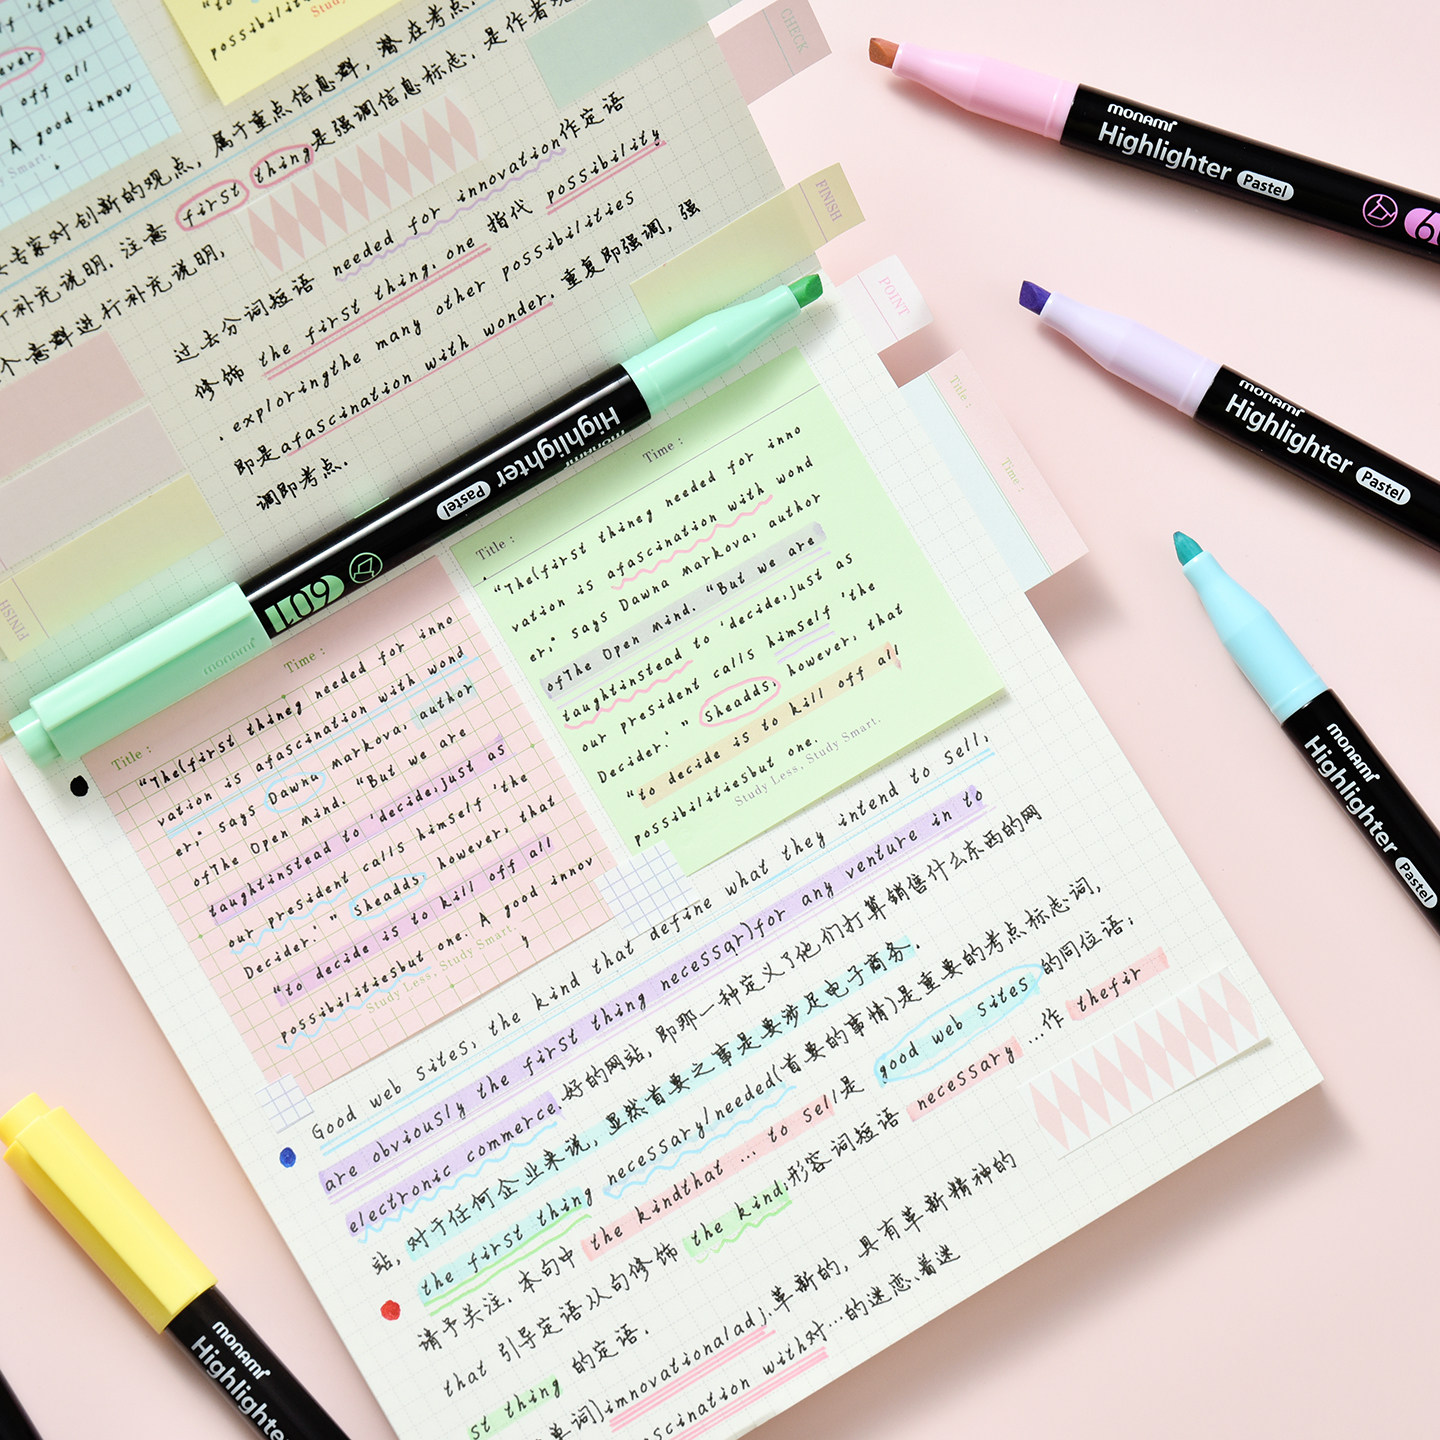 ever that
off all
A good innov
Smart.
possibilit
Study
CHECK
专家对创新的观点,属于重点信息群,潜在考点.
补充说明.注意 first thing是强调信息标志.是作者
个意群进行补充说明,
过去分词短语 needed for innovation作定语
修饰 the first thing. one 指代 possibility
. exploringthe many other possibilities
即是afascination with wonder.重复即强调,强
调即考点.
FINISH
POINT
Title :
Time :
FINISH
monami
Highlighter Pastel
601
monami
Title :
Time :
"The(first thineg needed for inno
vation is afascination with wond
er," says Dawna markova, author
ofThe Open Mind. "But we are
taughtinstead to 'decide,just as
our president calls himself 'the
Decider.' " Sheadds, however, that
"to decide is to kill off all
possibilitiesbut one.
Study Less, Study Smart.
Title :
Time :
"The(first thineg needed for inno
vation is afascination with wond
er," says Dawna markova, author
ofThe Open Mind. "But we are
taughtinstead to 'decide,just as
our president calls himself 'the
Decider.' " Sheadds, however, that
"to decide is to kill off all
possibilitiesbut one. A good innov
Study Less, Study Smart.
Good web sites, the kind that define what they intend to sell,
are obviously the first thing necessar)for any venture in to
electronic commerce.好的网站,即那一种定义了他们打算销售什么东西的网
站,对于任何企业来说,显然首要之事是要涉足电子商务.
the first thing necessary/needed(首要的事情)是重要的考点标志词,
请予关注.本句中 the kindthat ... to sell是 good web sites 的同位语;
that 引导定语从句修饰 the kind;形容词短语 necessary ...作 thefir
st thing 的定语.
单词)imnovational adj.革新的,具有革新精神的
scination with对...的迷恋、着迷
monami
Highlighter Pastel
monami
Highlighter Pastel
monami
Highlighter Pastel
monami
Highlighte